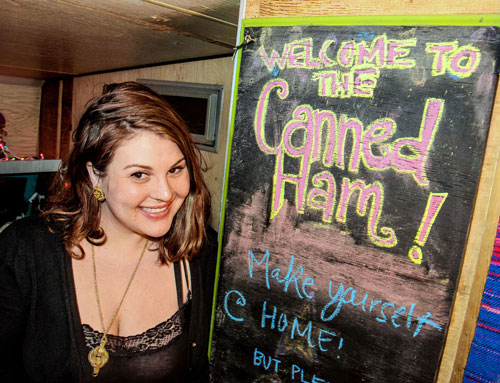 WELCOME TO
THE
Canned
Ham!
Make yourself
@ HOME!
BUT PLE